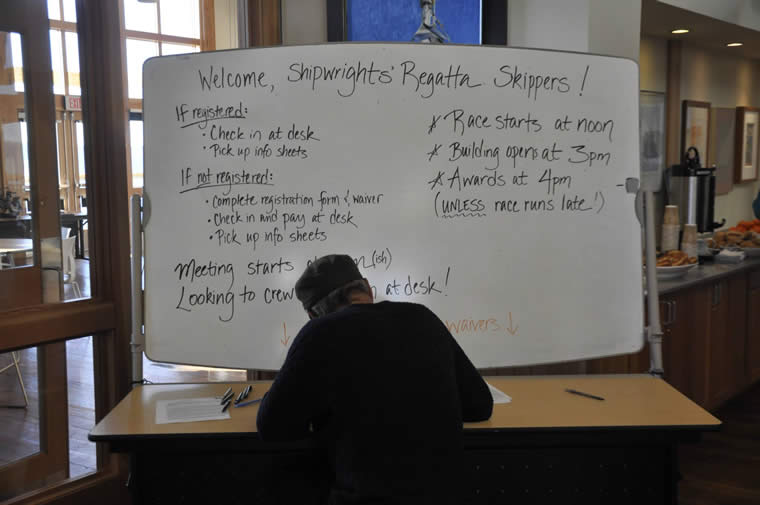 Welcome, Shipwrights' Regatta Skippers!
If registered:
• Check in at desk
• Pick up info sheets
If not registered:
• Complete registration form & waiver
• Check in and pay at desk
• Pick up info sheets
Meeting starts (ish)
Looking to crew at desk!
* Race starts at noon
* Building opens at 3pm
* Awards at 4pm
(UNLESS race runs late!)
↓ waivers ↓
EXIT